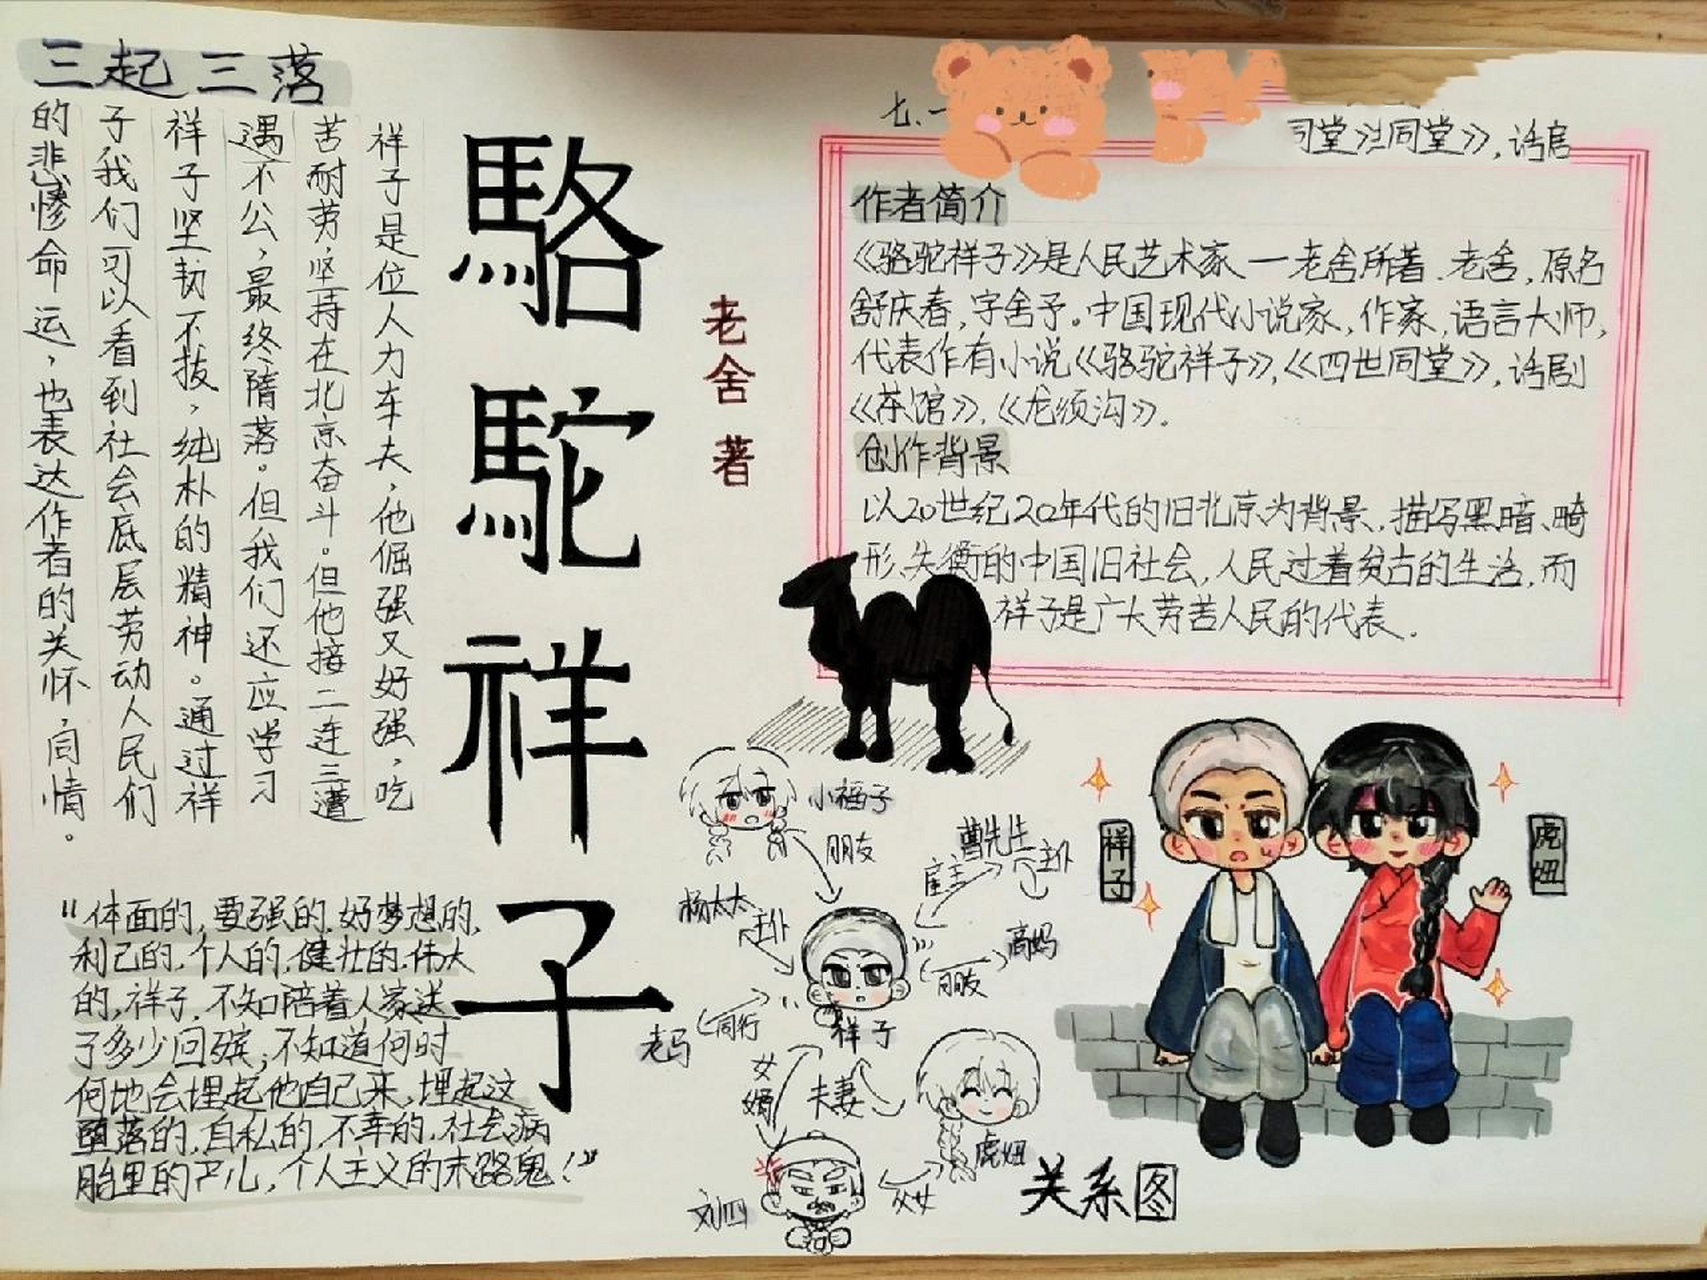 三起三落
祥子是位人力车夫，他倔强又好强，吃
苦耐劳，坚持在北京奋斗。但他接二连三遭
遇不公，最终堕落。但我们还应学习
祥子坚韧不拔，纯朴的精神。通过祥
子我们可以看到社会底层劳动人民们
的悲惨命运，也表达作者的关怀，同情。
駱駝祥子
老舍 著
七.一
同堂》
同堂》，话剧
作者简介
《骆驼祥子》是人民艺术家一老舍所著.老舍，原名
舒庆春，字舍予。中国现代小说家，作家，语言大师，
代表作有小说《骆驼祥子》，《四世同堂》，话剧
《茶馆》，《龙须沟》.
创作背景
以20世纪20年代的旧北京为背景，描写黑暗、畸
形、失衡的中国旧社会，人民过着贫古的生活，而
祥子是广大劳苦人民的代表.
“体面的，要强的，好梦想的，
利己的，个人的，健壮的，伟大
的，祥子，不知陪着人家送
了多少回殡；不知道何时
何地会埋起他自己来，埋起这
堕落的，自私的，不幸的，社会病
胎里的产儿，个人主义的末路鬼！”
小福子
朋友
曹先生
主仆
雇主
杨太太
主仆
高妈
朋友
祥子
老马
同行
女婿
夫妻
虎妞
父女
刘四
关系图
祥子
虎妞